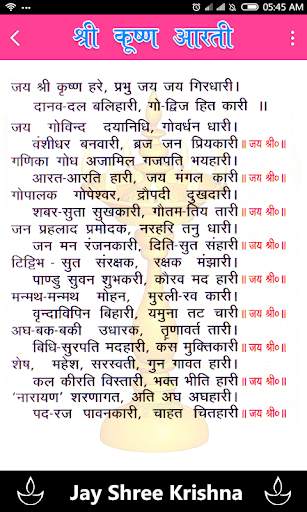 05:45 AM
श्री कृष्ण आरती
जय श्री कृष्ण हरे, प्रभु जय जय गिरधारी।
दानव-दल बलिहारी, गो-द्विज हित कारी ॥
जय गोविन्द दयानिधि, गोवर्धन धारी।
वंशीधर बनवारी, ब्रज जन प्रियकारी॥जय श्री०॥
गणिका गोध अजामिल गजपति भयहारी।
आरत-आरति हारी, जय मंगल कारी॥जय श्री०॥
गोपालक गोपेश्वर, द्रौपदी दुखदारी।
शबर-सुता सुखकारी, गौतम-तिय तारी॥जय श्री०॥
जन प्रहलाद प्रमोदक, नरहरि तनु धारी।
जन मन रंजनकारी, दिति-सुत संहारी॥जय श्री०॥
टिट्टिभ - सुत संरक्षक, रक्षक मंझारी।
पाण्डु सुवन शुभकरी, कौरव मद हारी॥जय श्री०॥
मन्मथ-मन्मथ मोहन, मुरली-रव कारी।
वृन्दाविपिन बिहारी, यमुना तट चारी॥जय श्री०॥
अघ-बक-बकी उधारक, तृणावर्त तारी।
बिधि-सुरपति मदहारी, कंस मुक्तिकारी॥जय श्री०॥
शेष, महेश, सरस्वती, गुन गावत हारी।
कल कीरति विस्तारी, भक्त भीति हारी॥जय श्री०॥
'नारायण' शरणागत, अति अघ अघहारी।
पद-रज पावनकारी, चाहत चितहारी॥जय श्री०॥
Jay Shree Krishna